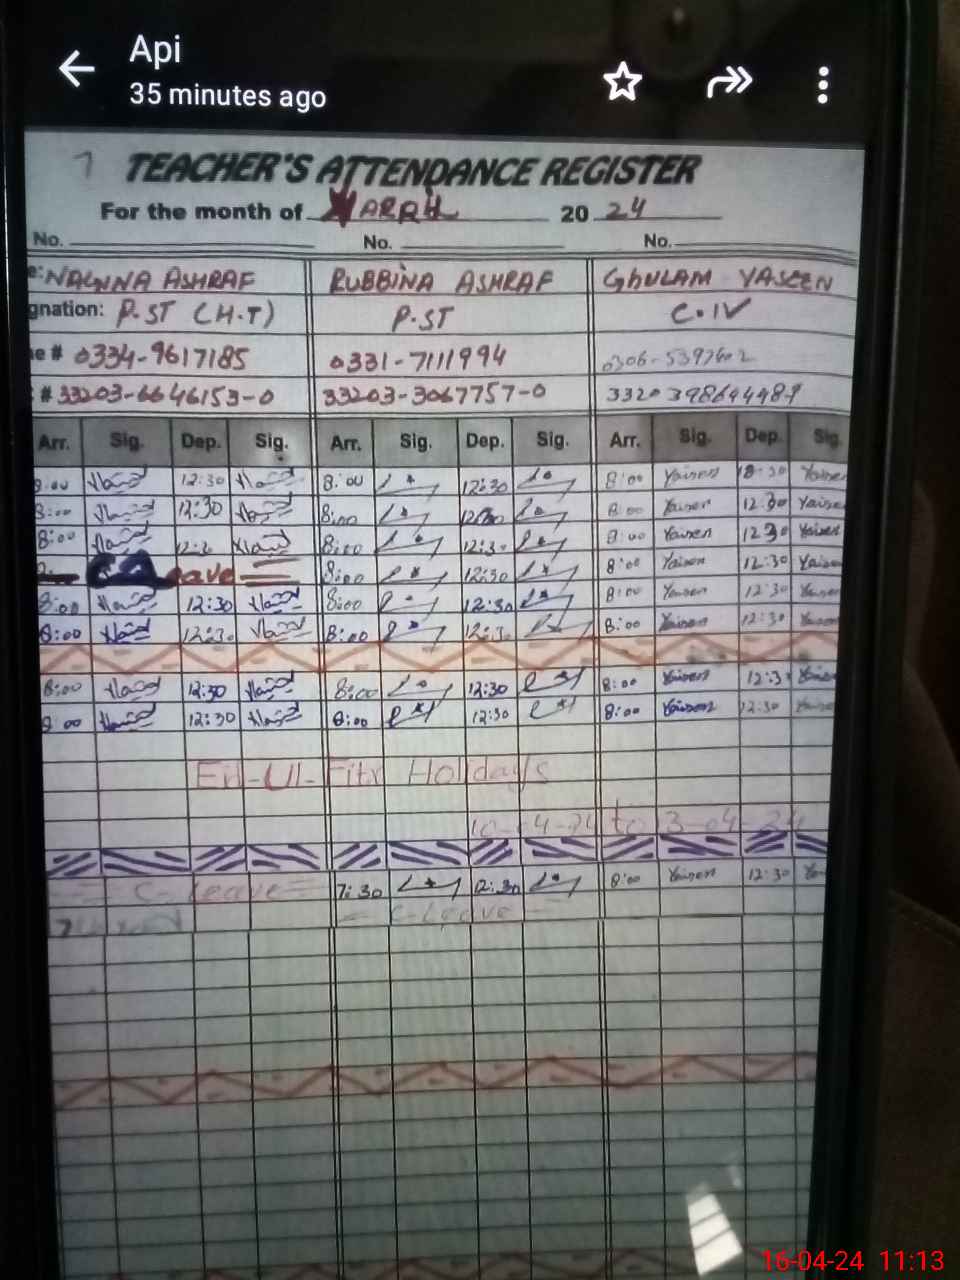 Api
35 minutes ago
7 TEACHER'S ATTENDANCE REGISTER
For the month of 20 24
No. No. No.
e: ASHRAF RUBBINA ASHRAF GHULAM YASEEN
gnation: P.ST (H.T) P.ST C.IV
e # 0334-9617185 0331-7111994
# 33203-6646153-0 33203-3067757-0
Arr. Sig. Dep. Sig. Arr. Sig. Dep. Sig. Arr. Sig. Dep. Sig
12:30 8:00 12:30 8:00 Yaiseen
8:00 12:30 8:00 8:00 Yaisen 12:30 Yaisen
8:00 8:00 12:30 8:00 Yaisen 12 30 Yaisen
eave 8:00 12:30 8:00 Yaisen 12:30 Yaise
8:00 12:30 8:00 12:30 8:00 Yaisen 12:30 Yaisen
8:00 12:30 8:00 12:30 8:00 Yaisen 12:30 Yaisen
8:00 12:30 8:00 12:30 8:00 Yaisen 12:3 Yaise
8:00 12:30 8:00 12:30 8:00 Yaisen 12:30 Yaise
Eid-Ul-Fitr Holidays
10-04-24 to 13-04-24
C-Leave 7:30 12:30 8:00 Yaisen 12:30 Ya
C-Leave
16-04-24 11:13